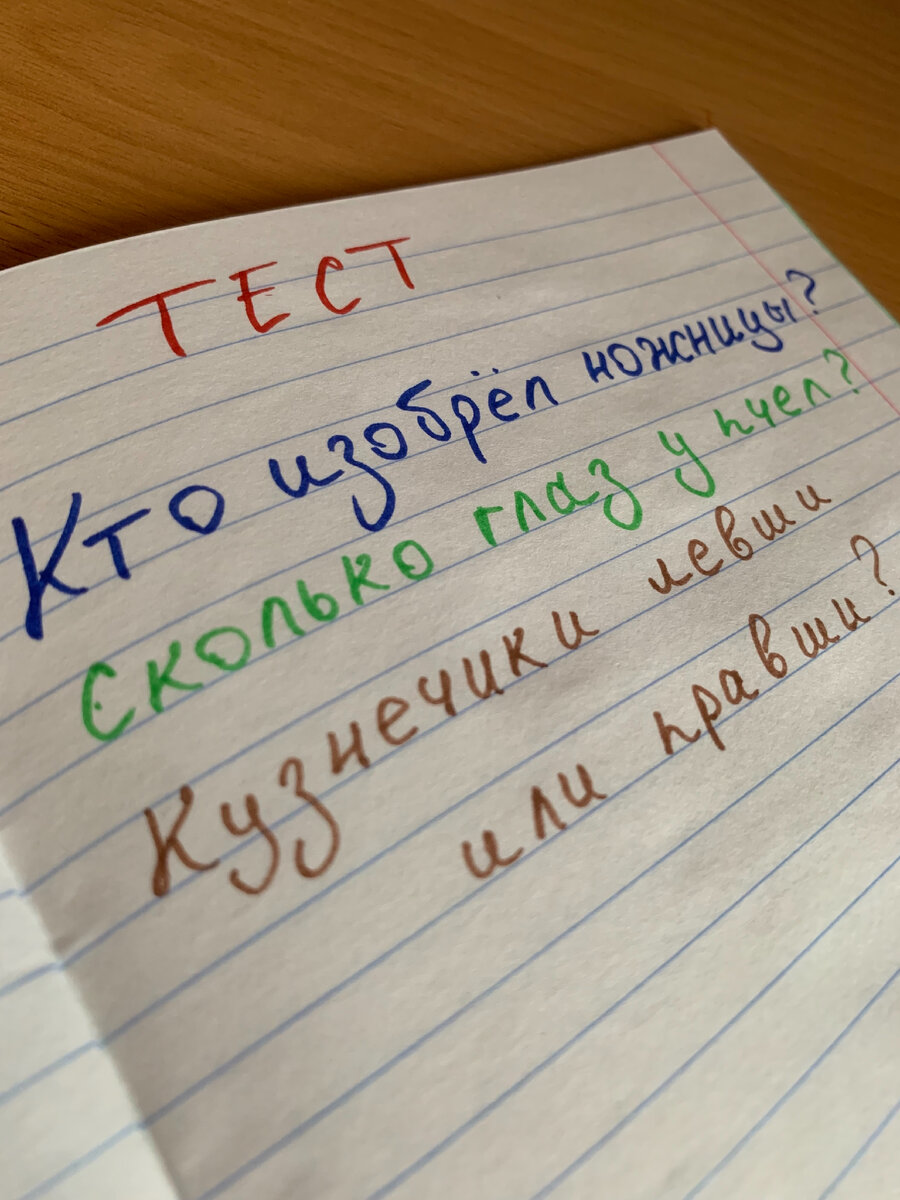 ТЕСТ
Кто изобрёл ножницы?
Сколько глаз у пчел?
Кузнечики левши
или правши?